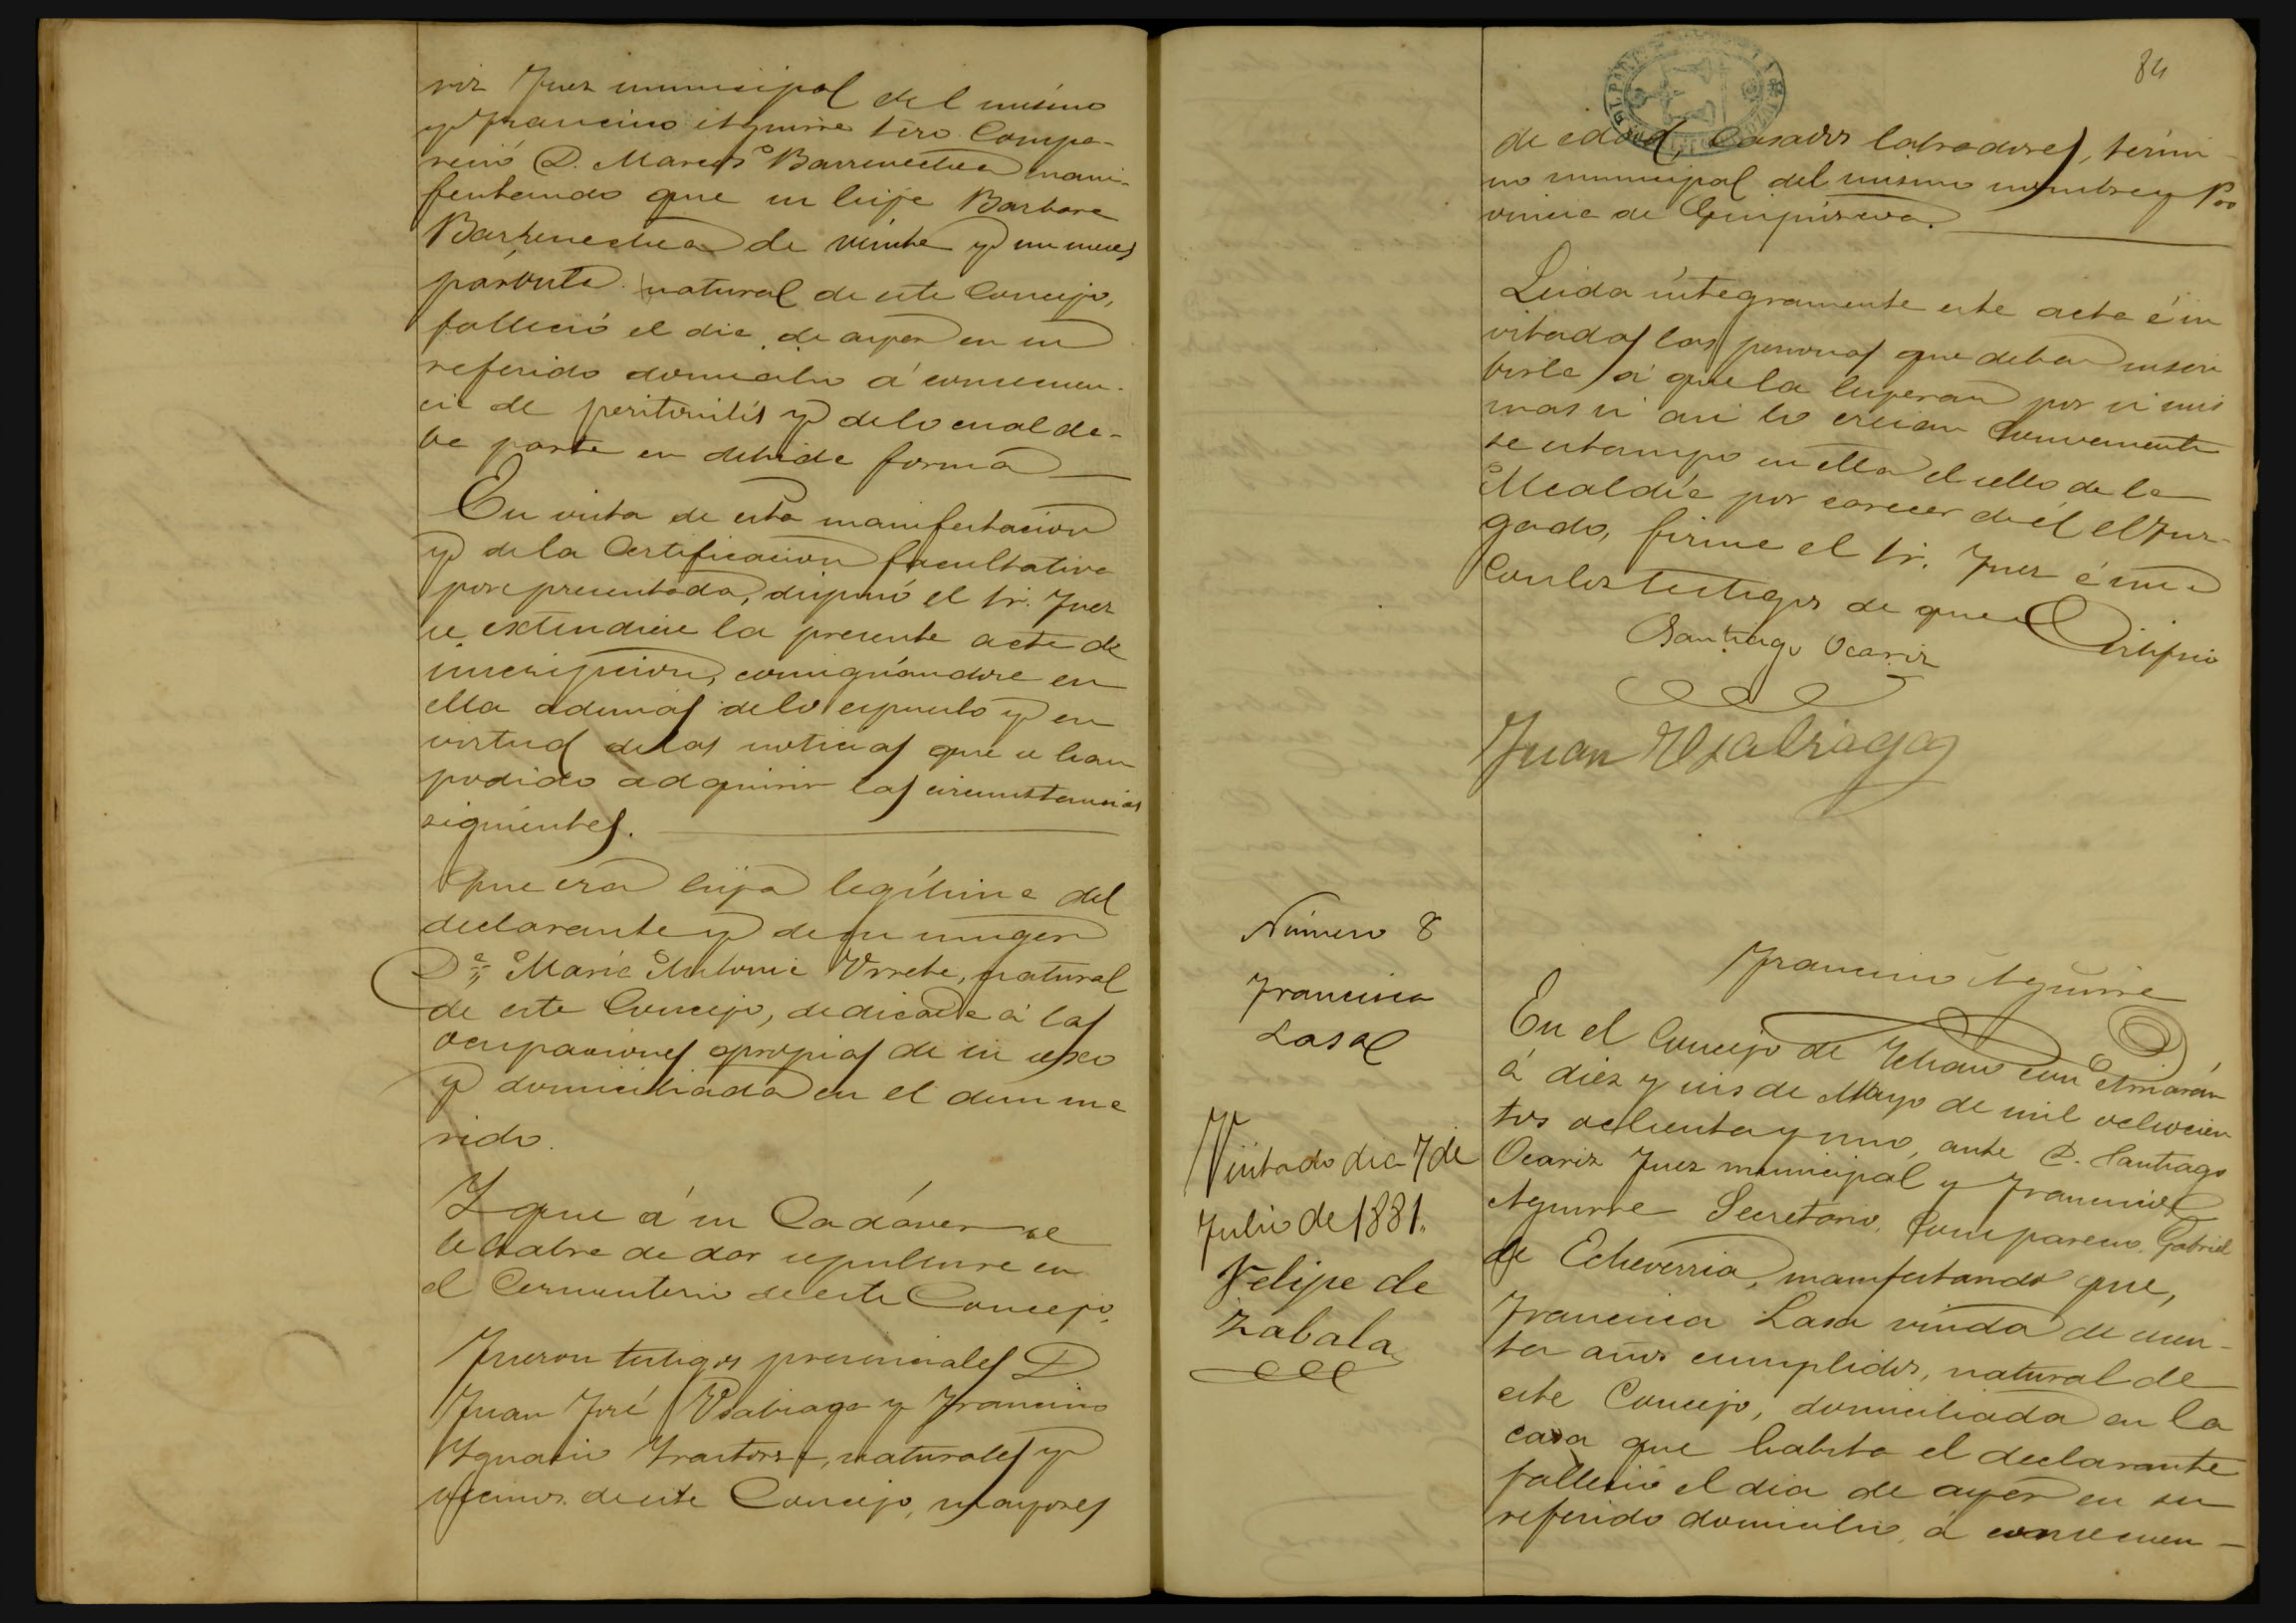 riz Juez municipal del mismo
y Francisco Aguirre Srio. Compa-
reció D. Marcos Barrenechea mani-
festando que su hija Barbara
Barrenechea de veinte y un meses
párvula natural de este Concejo,
falleció el dia de ayer en su
referido domicilio á consecuen-
cia de peritonitis y de lo cual da-
ba parte en debida forma
En vista de esta manifestacion
y de la Certificacion facultativa
presentada, dispuso el Sr. Juez
se extendiese la presente acta de
inscripcion, consignándose en
ella ademas de lo expuesto y en
virtud de las noticias que se han
podido adquirir las circunstancias
siguientes.
Que era hija legítima del
declarante y de su muger
Dª Maria Antonia Urreta, natural
de este Concejo, dedicada á las
ocupaciones propias de su sexo
y domiciliada en el de su ma
rido.
Y que á su Cadáver se
le habra de dar sepultura en
el Cementerio de este Concejo.
Fueron testigos presenciales D
Juan José Usabiaga y Francisco
Ignacio naturales y
vecinos de este Concejo, mayores
84
de edad, casados labradores, térmi
no municipal del mismo nombre y Pro
vincia de Guipúzcoa.
Leida íntegramente esta acta é in
vitadas las personas que deban suscri
birla á que la leyeran por si mis
mas si asi lo creian conveniente
se estampo en ella el sello de la
Alcaldía por carecer de él el Juz-
gado, firma el Sr. Juez é
con los testigos de que Certifico
Santiago Ocariz
Juan Usabiaga
Francisco Aguirre
Número 8
Francisca
Lasa
Visitado dia 7 de
Julio de 1881.
Felipe de
Zabala
En el Concejo de con
á diez y seis de Mayo de mil ochocien
tos ochenta y uno, ante D. Santiago
Ocariz Juez municipal y Francisco
Aguirre Secretario, Comparecio Gabriel
de Echeverria, manifestando que,
Francisca Lasa viuda de
ta años cumplidos, natural de
este Concejo, domiciliada en la
casa que habita el declarante
falleció el dia de ayer en su
referido domicilio, á consecuen-